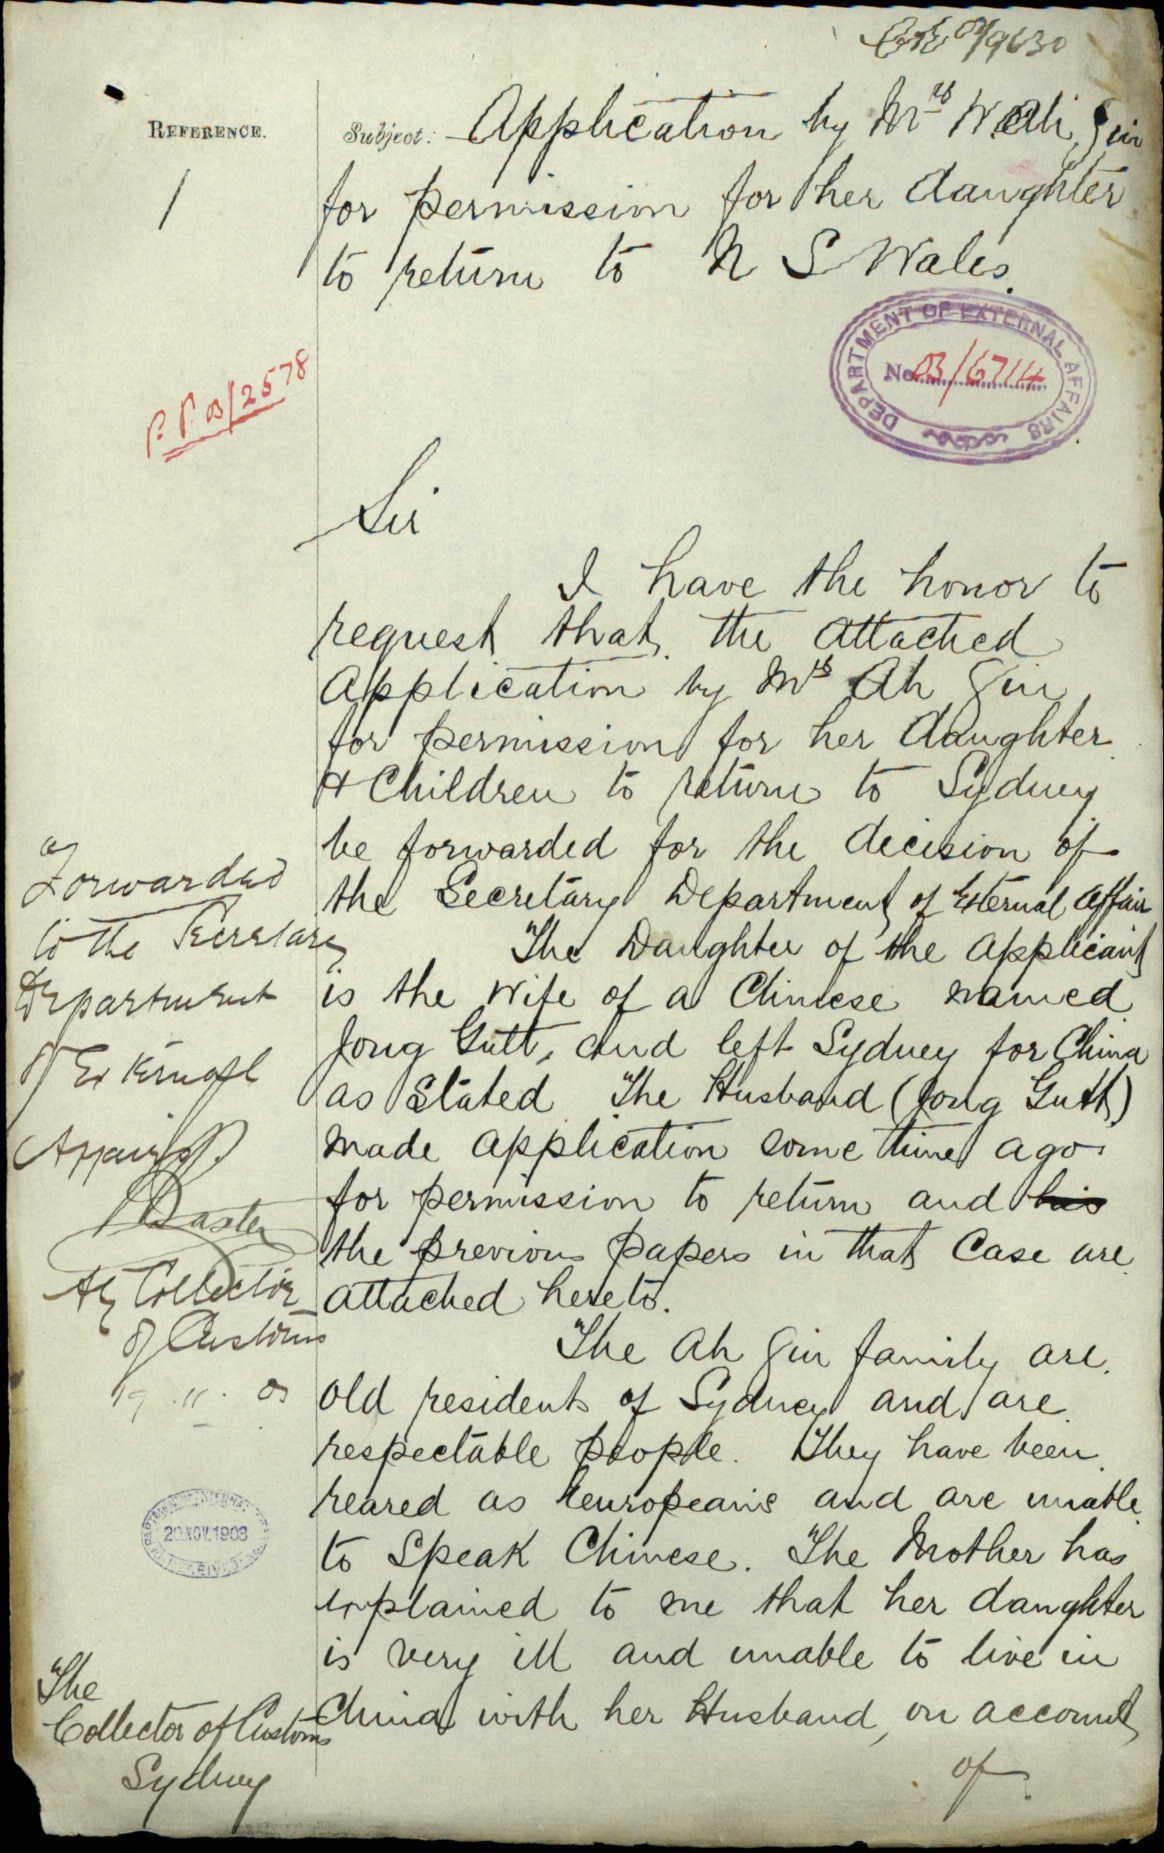 03/9630
REFERENCE.
1
Subject: Application by Mrs W Ah Gin
for permission for her daughter
to return to N S Wales.
DEPARTMENT OF EXTERNAL AFFAIRS
No. 03/6714
P.P. 03/2578
Sir
I have the honor to
request that the attached
application by Mrs Ah Gin
for permission for her daughter
& Children to return to Sydney
be forwarded for the decision of
the Secretary Department of External Affairs
The Daughter of the applicant
is the wife of a Chinese named
Jong Gutt, and left Sydney for China
as stated The Husband (Jong Gutt)
made application some time ago
for permission to return and his
the previous papers in that Case are
attached hereto.
The Ah Gin family are
old residents of Sydney and are
respectable people. They have been
reared as Europeans and are unable
to speak Chinese. The Mother has
explained to me that her daughter
is very ill and unable to live in
China with her Husband, on account
of
Forwarded
to the Secretary
Department
of External
Affairs
Baxter
Actg Collector
of Customs
19.11.03
20 NOV. 1903
The
Collector of Customs
Sydney